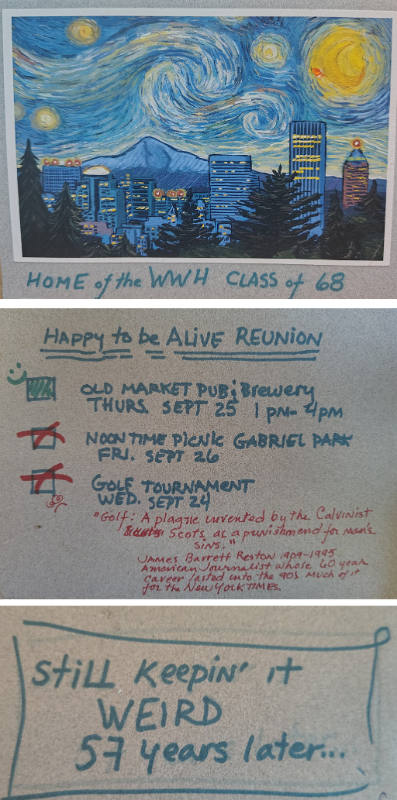 HOME of the WWH CLASS of 68
HAPPY to be ALIVE REUNION
OLD MARKET PUB & Brewery
THURS. SEPT 25 1 PM - 4 PM
NOON TIME PICNIC GABRIEL PARK
FRI. SEPT 26
GOLF TOURNAMENT
WED. SEPT 24
"Golf: A plague invented by the Calvinist
Scots as a punishment for man's
sins."
JAMES Barrett Reston 1909-1995
American Journalist whose 60 year
career lasted into the 90's much of it
for the New York TIMES.
Still Keepin' it
WEIRD
57 years later...